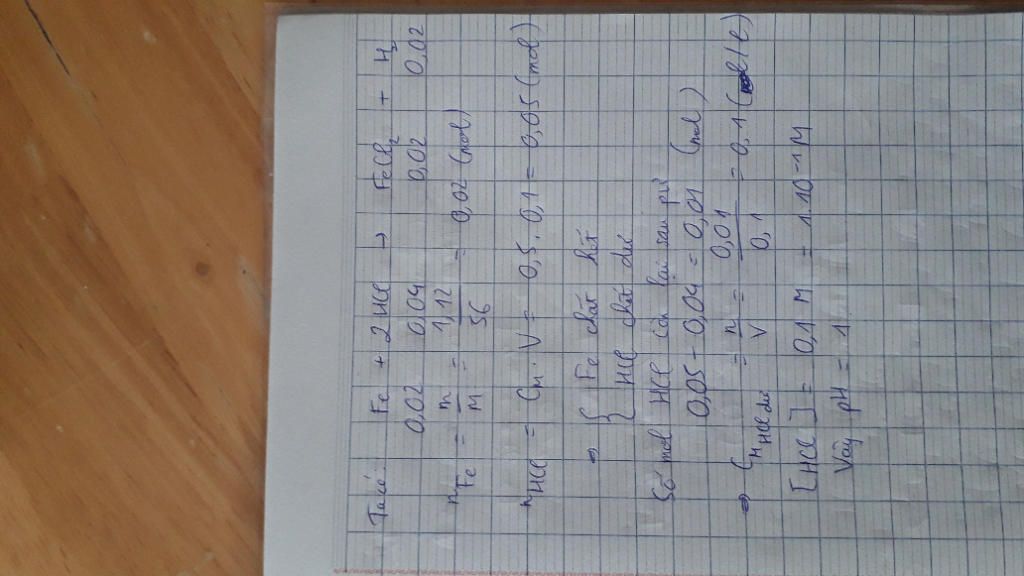 Ta có: Fe + 2HCl → FeCl₂ + H₂
0,02 0,04 0,02 0,02
nFe = m/M = 1,12/56 = 0,02 (mol)
nHCl = CM . V = 0,5 . 0,1 = 0,05 (mol)
⇒ { Fe chất hết
{ HCl chất dư
Số mol HCl còn lại sau pứ
0,05 - 0,04 = 0,01 (mol)
⇒ CM HCl dư = n/V = 0,01/0,1 = 0,1 (mol/l)
[HCl] = 0,1 M = 1.10⁻¹ M
Vậy pH = 1